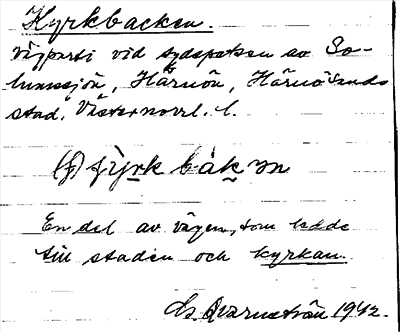 Kyrkbacken.
Vägparti vid sydspetsen av So-
lumsjön, Härnön, Härnösands
stad, Västernorrl. l.
kyrkan.
En del av vägen, som ledde
till staden och kyrkan.
1942.